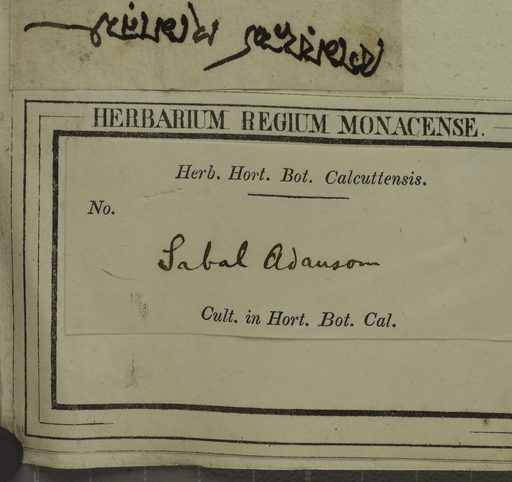 HERBARIUM REGIUM MONACENSE.
Herb. Hort. Bot. Calcuttensis.
No.
Sabal Adansom
Cult. in Hort. Bot. Cal.